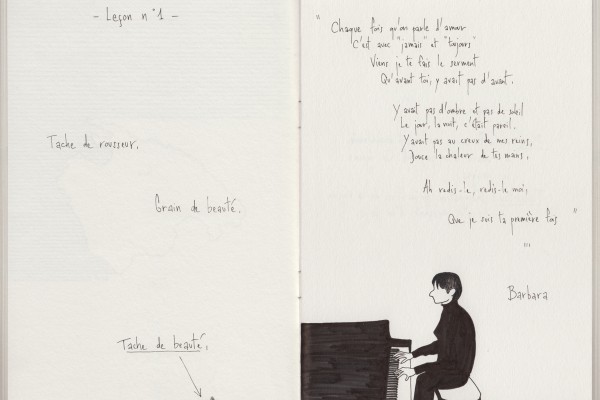 - Leçon n°1 -
Tache de rousseur.
Grain de beauté.
Tache de beauté.
" Chaque fois qu'on parle d'amour
C'est avec "jamais" et "toujours"
Viens je te fais le serment
Qu'avant toi, y avait pas d'avant.
Y avait pas d'ombre et pas de soleil
Le jour, la nuit, c'était pareil.
Y avait pas au creux de mes reins,
Douce la chaleur de tes mains.
Ah redis-le, redis-le moi,
Que je suis ta première fois "
...
Barbara